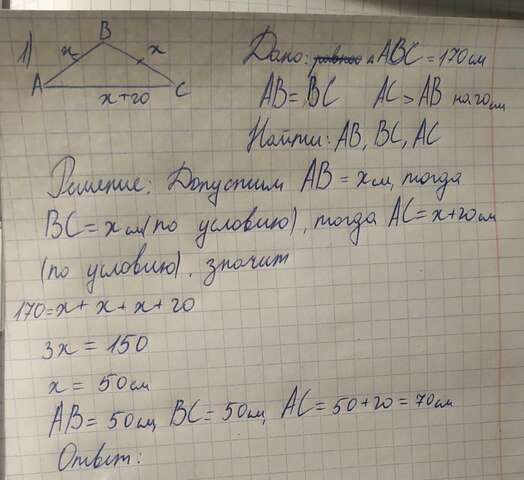 1) B
x x
A C
x+20
Дано: ΔABC = 170 см
AB = BC AC > AB на 20 см
Найти: AB, BC, AC
Решение: Допустим AB = x см, тогда
BC = x см (по условию), тогда AC = x+20 см
(по условию), значит
170 = x + x + x + 20
3x = 150
x = 50 см
AB = 50 см, BC = 50 см, AC = 50 + 20 = 70 см
Ответ: